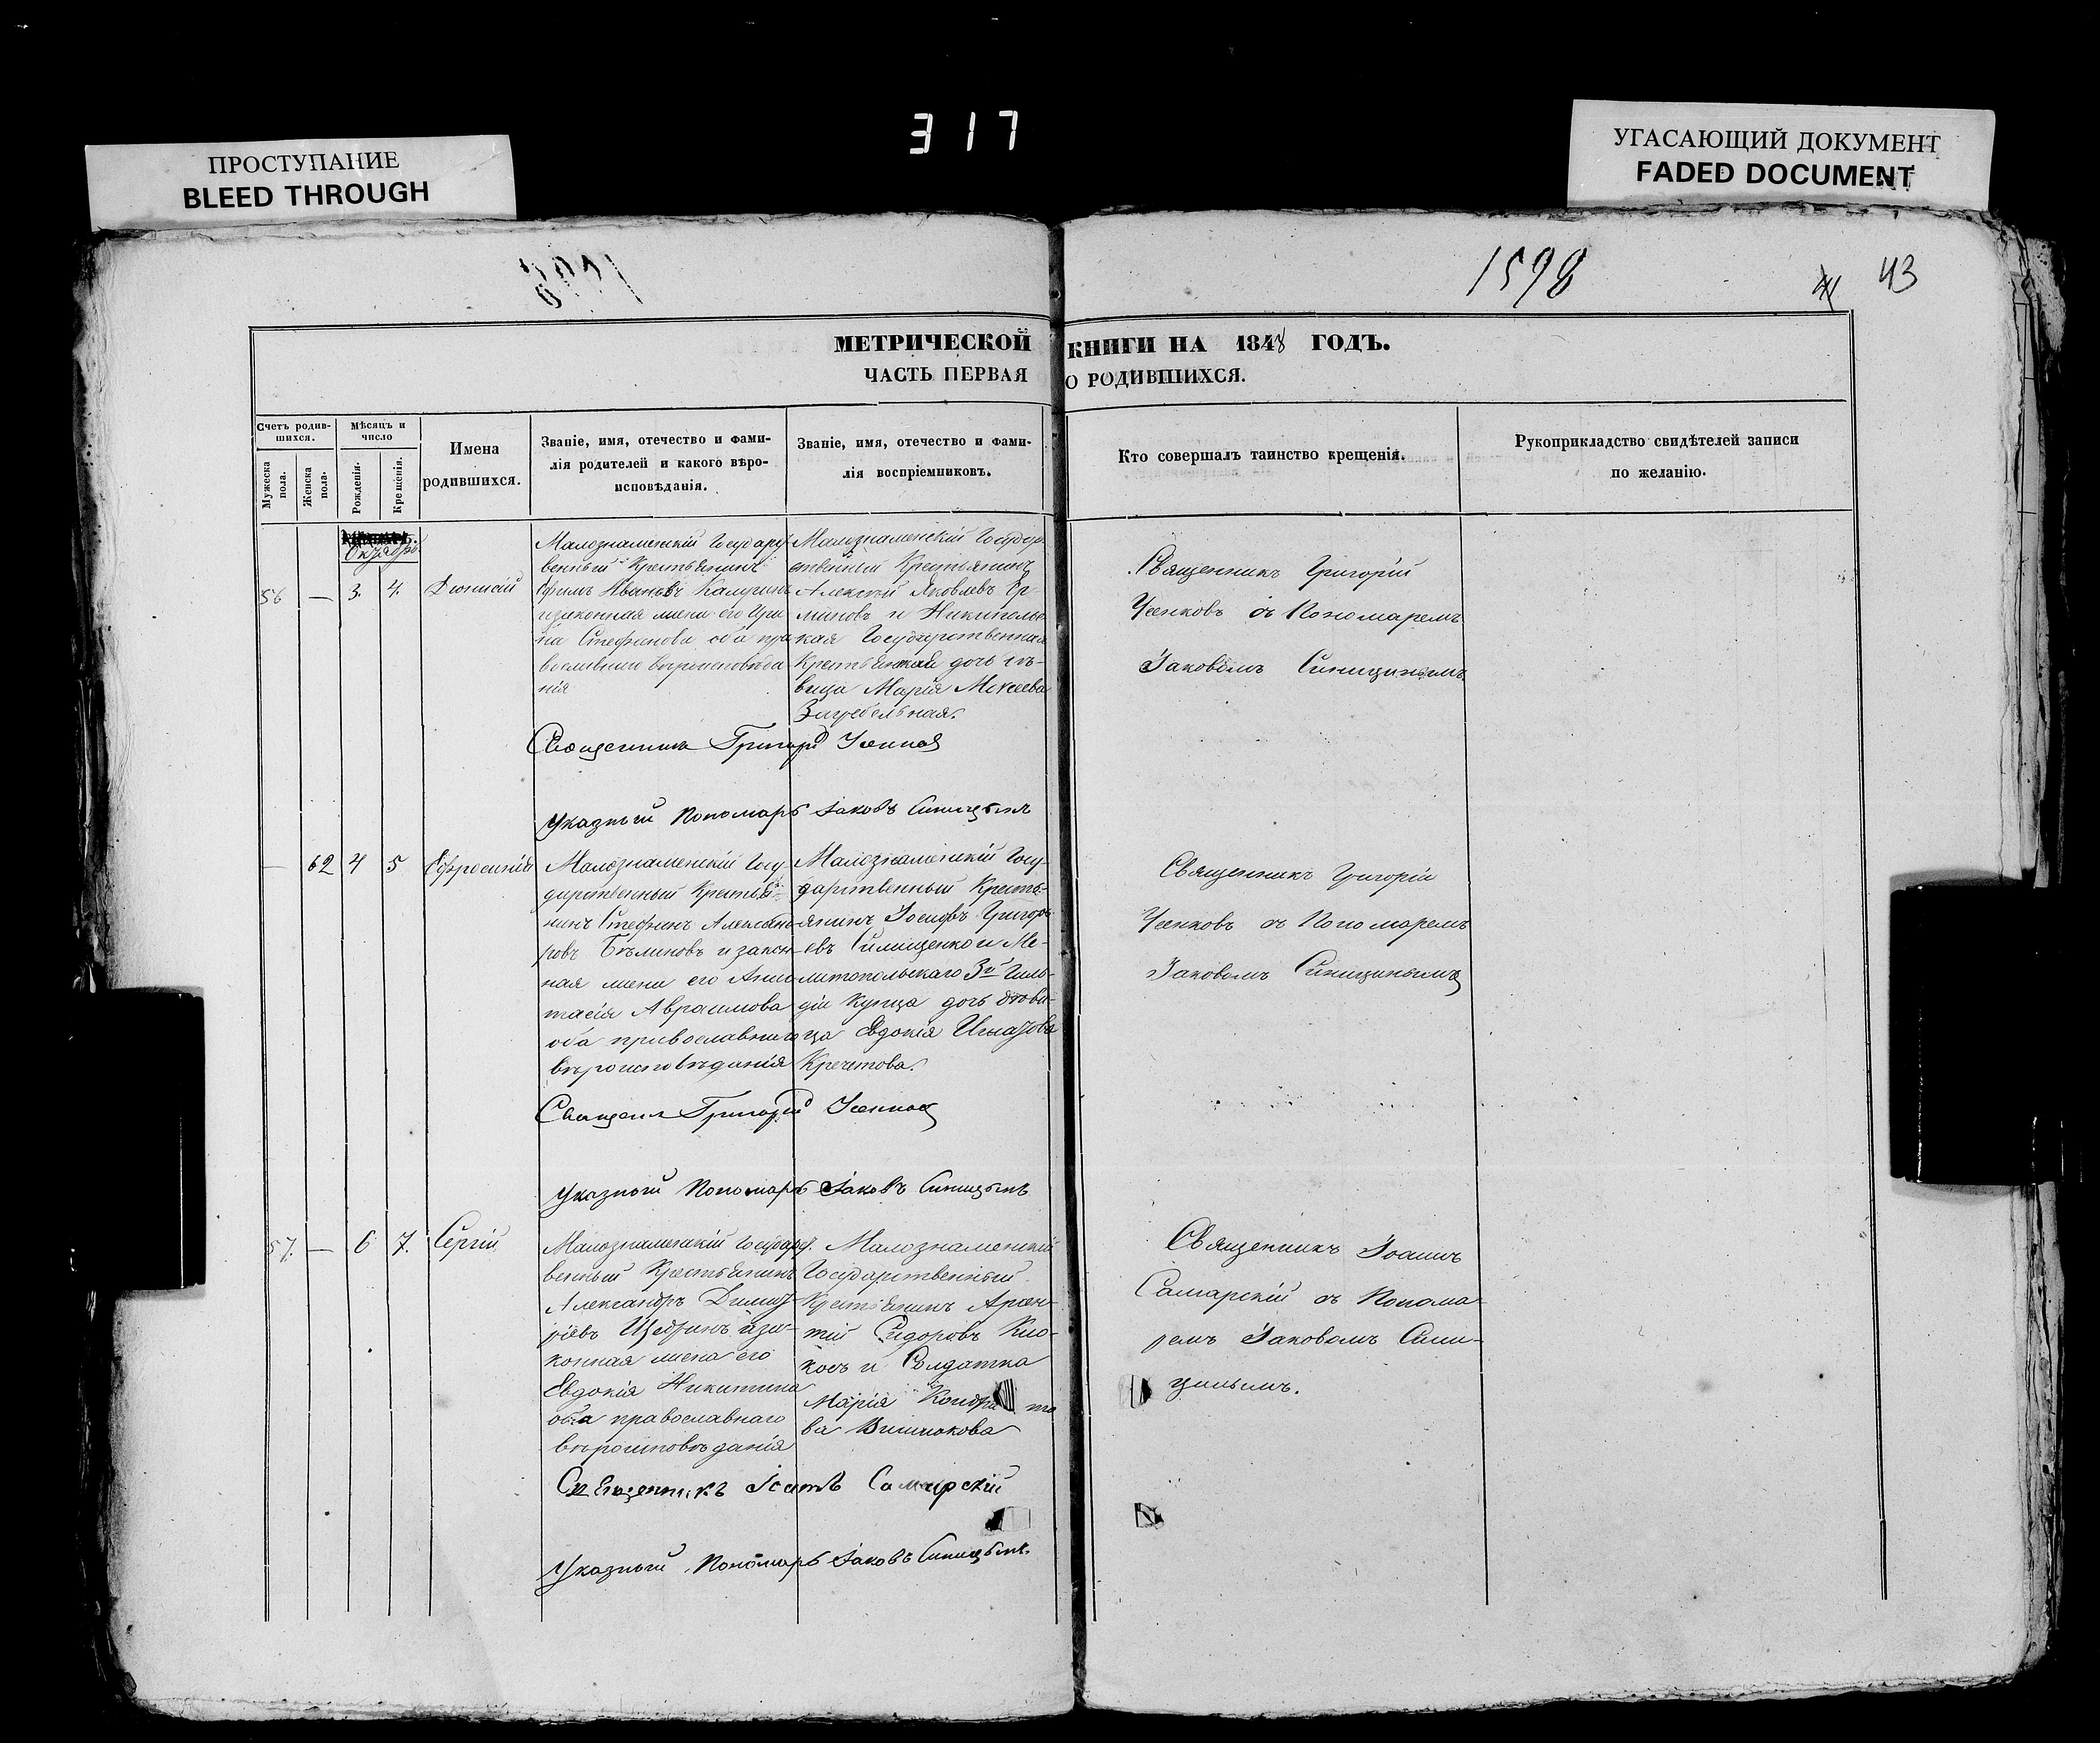 317
ПРОСТУПАНИЕ
BLEED THROUGH
УГАСАЮЩИЙ ДОКУМЕНТ
FADED DOCUMENT
1598
43
МЕТРИЧЕСКОЙ КНИГИ НА 1848 ГОДЪ.
ЧАСТЬ ПЕРВАЯ О РОДИВШИХСЯ.
Счетъ родив-
шихся.
Мужеска пола.
Женска пола.
Мѣсяцъ и
число
Рожденія.
Крещенія.
Имена
родившихся.
Званіе, имя, отечество и фами-
лія родителей и какого вѣро-
исповѣданія.
Званіе, имя, отечество и фами-
лія воспріемниковъ.
Кто совершалъ таинство крещенія.
Рукоприкладство свидѣтелей записи
по желанію.
Октябрь
56 — 3. 4.
Малознаменскій Государст
венный Крестьянинъ
Ефимъ Ивановъ
и законная жена его Ири
на Стефанова оба пра
вославнаго вѣроисповѣда
нія
Малознаменскій Государ
ственный Крестьянинъ
Алексѣй Яковлевъ Ер
Государственная
Крестьянская дочь дѣ-
вица Марія Мокеева
Загребельная.
Священникъ Григорій
Усенковъ съ Пономаремъ
Іаковомъ Синицинымъ
Священникъ Григорій Усенков
Указный Пономарь Іаковъ Синицынъ
— 62 4 5 Ефросинія
Малознаменскій Госу-
дарственный Крестья-
нинъ Стефанъ Александ
ровъ Бѣликовъ и закон-
ная жена его Анас
тасія Авраимова
оба православнаго
вѣроисповѣданія
Малознаменскій Госу-
дарственный Кресть-
янинъ Іосифъ Григорь-
евъ Симищенко и Ме-
литопольскаго 3й Гиль-
діи Купца дочь дѣви-
ца Евдокія Игнатова
Кречетова.
Священникъ Григорій
Усенковъ съ Пономаремъ
Іаковомъ Синицинымъ
Священ Григорій Усенков
Указный Пономарь Іаковъ Синицынъ
57. — 6 7. Сергій
Малознаменскій Государст
венный Крестьянинъ
Александръ Димит
ріевъ Щедринъ и за-
конная жена его
Евдокія Никитина
оба православнаго
вѣроисповѣданія
Малознаменскій
Государственный
Крестьянинъ
Сидоровъ
и Солдатка
Марія Кондра та
ва Вишнякова
Священникъ Іоаннъ
Самарскій съ Понома-
ремъ Іаковомъ Сини-
цинымъ.
Священникъ Іоаннъ Самарскій
Указный Пономарь Іаковъ Синицынъ.